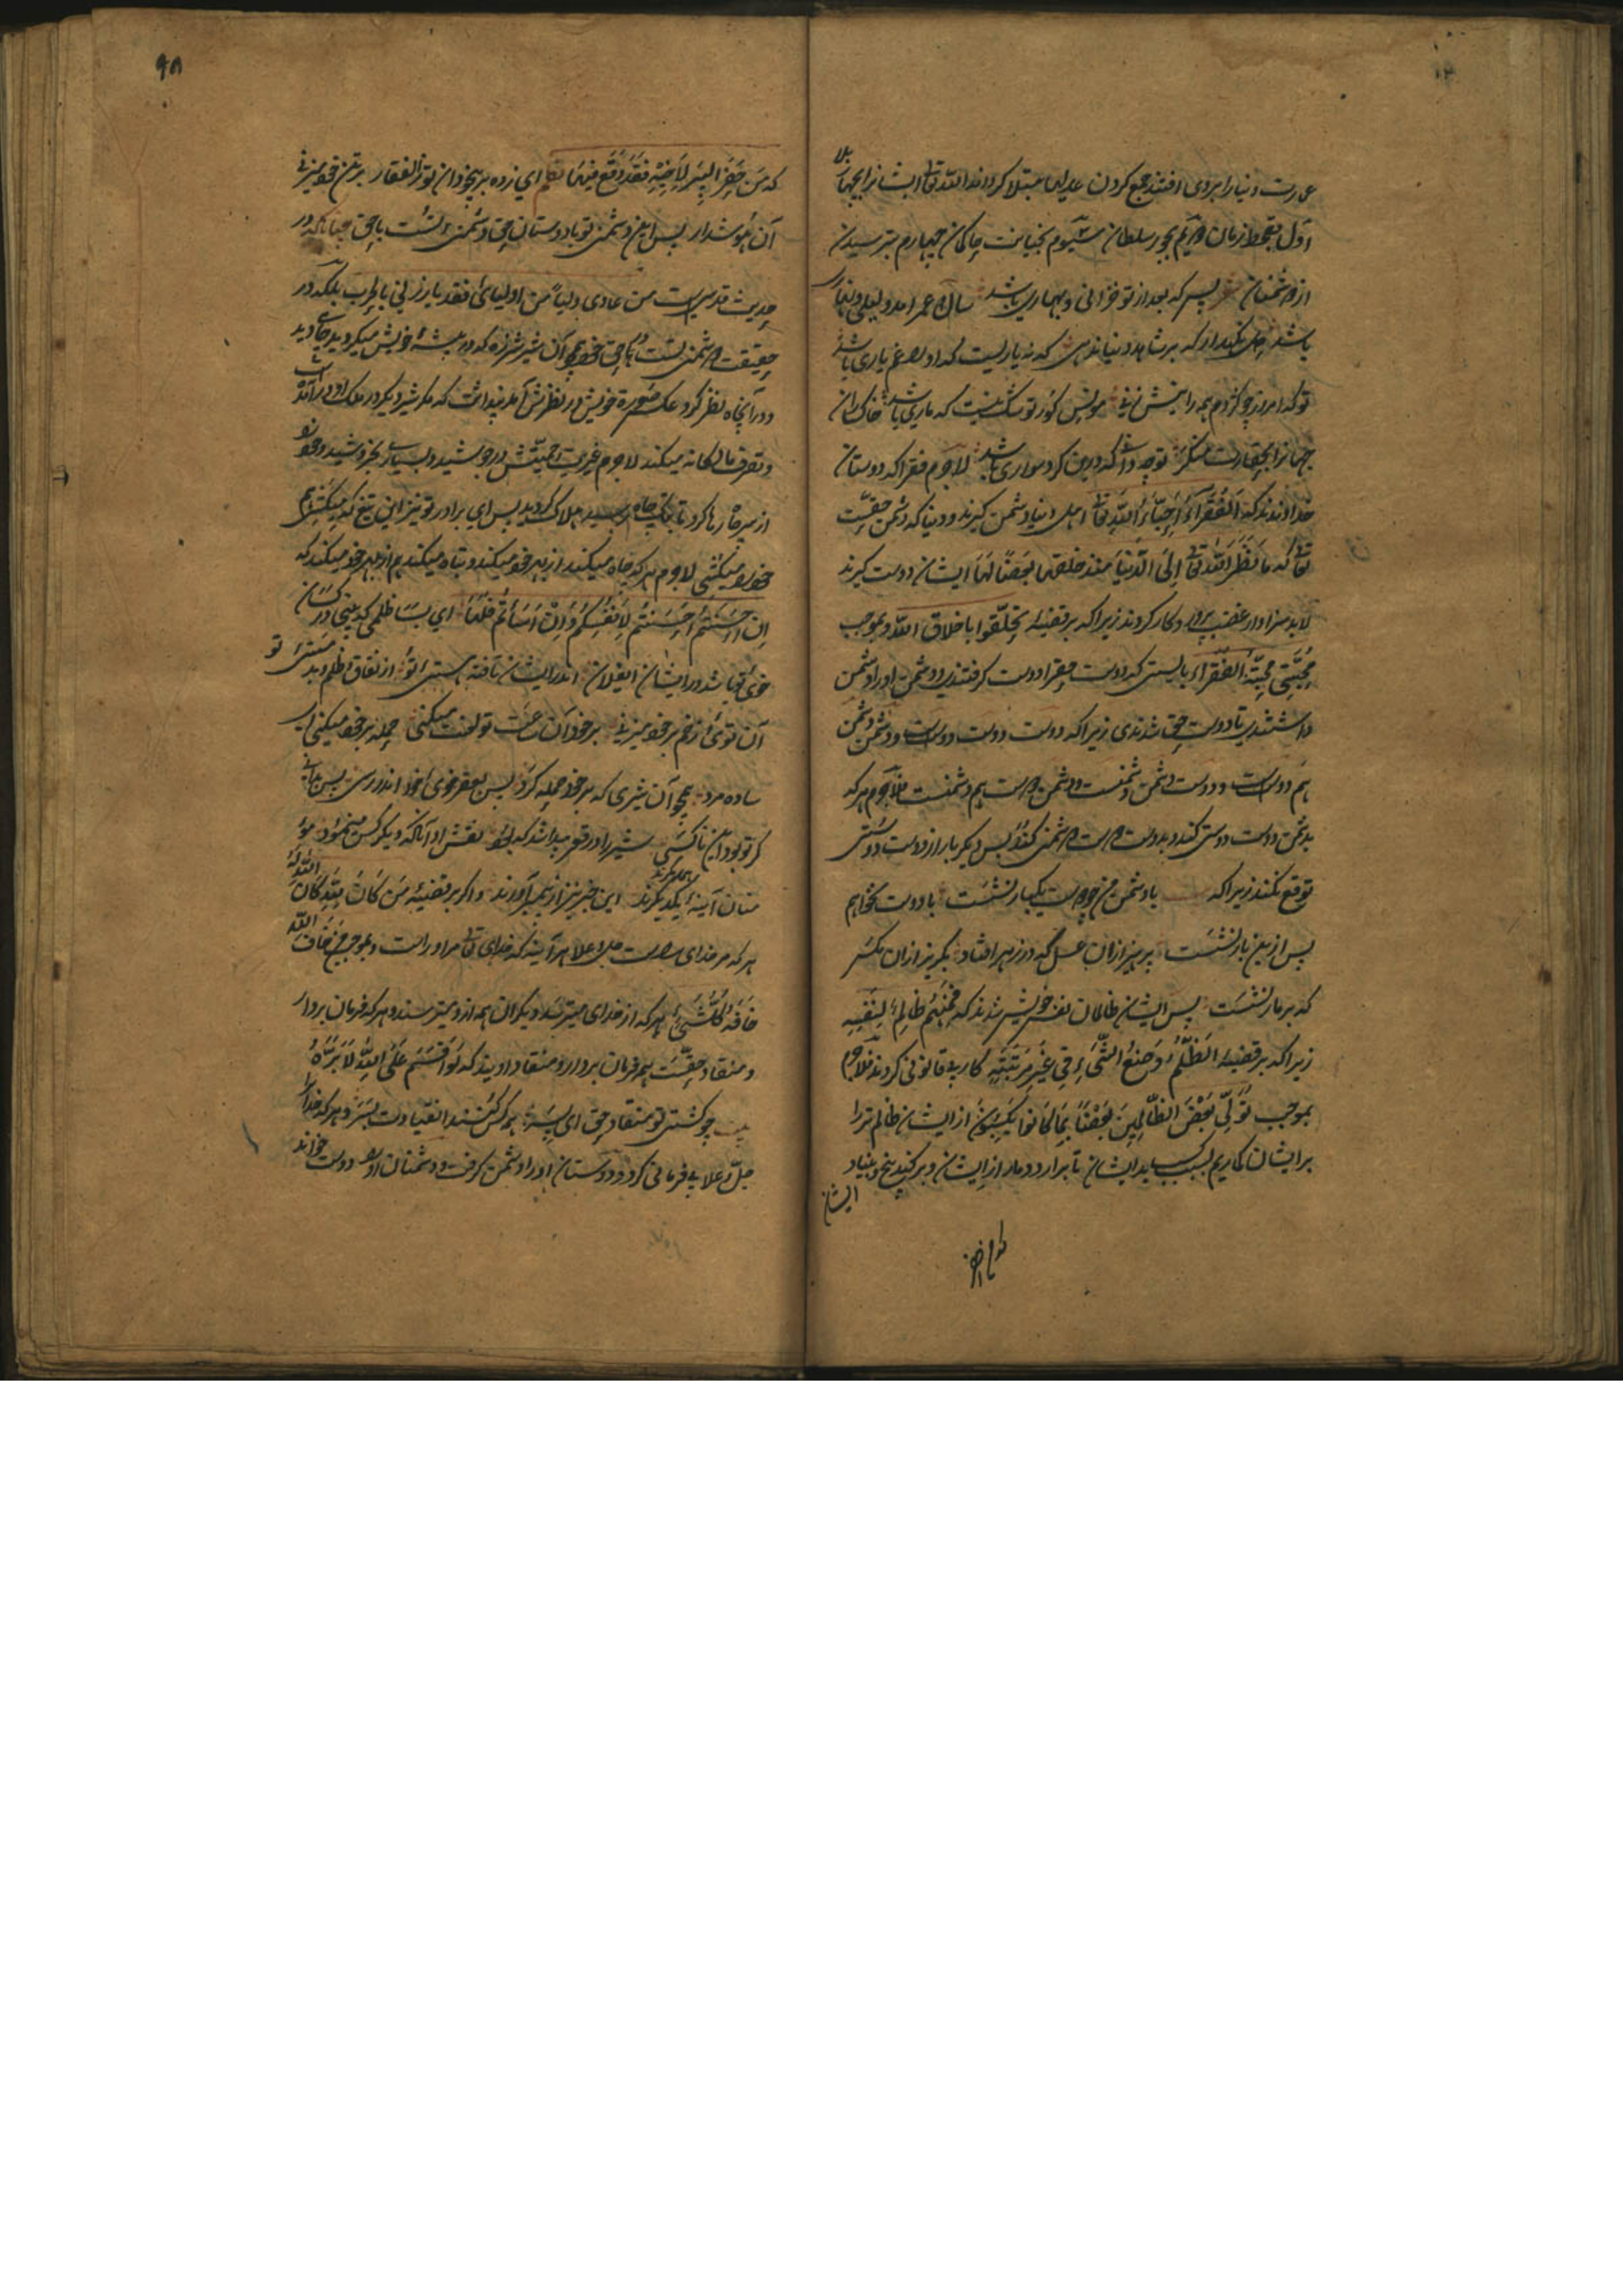 عمارت دنیا را بروی افتند جمع کردن مبتلا کرداند الله تعالی ایشانرا بچهار بلا
اول بقحط زمان دویم بجور سلطان سیوم بخیانت حاکمان چهارم بترسیدن
از دشمنان پس که بعد از تو خزانی و بهاری باشد
باشد که بر شاهد دنیا ننهی که نه یاریست که او را غم یاری باشد
تو که امروز چو کژدم همه را نیش زنی مونس گور تو شک نیست که ماری باشد خاکساران
جهانرا بحقارت منگر تو چه دانی که درین گرد سواری باشد لاجرم فقرا که دوستان
خدااوندند که الفقراء احباء الله تعالی اهل دنیا دشمن گیرند و دنیا که دشمن حقست
تعالی که ما نظر الله تعالی الی الدنیا منذ خلقها بغضا لها ایشان دوست گیرند
لابد سزاوار غضب کردند زیرا که بر قضیه تخلقوا باخلاق الله و بموجب
محبتی محبة الفقراء بایستی که دوست حق را دوست گرفتندی و دشمن او را دشمن
داشتندی تا دوست حق شدندی زیرا که دوست دوست دوست و دشمن دشمن
هم دوست و دوست دشمن دشمنست و دشمن دوست هم دشمنست فلاجرم هر که
بدشمن دوست دوستی کند و بدوست دوست دشمنی کند پس دیگر بار از دوست دوستی
توقع نکند زیرا که با دشمن من چو دوست یکبار نشست با دوست نخواهم
پس ازین بار نشست پرهیز ازان عسل که در زهر افتاد بگریز ازان مگس
که بر مار نشست پس ایشان ظالمان نفس خویش شدند که فمنهم ظالم لنفسه
زیرا که بر قضیه الظلم وضع الشیء فی غیر مرتبته کار بیقانونی کردند فلاجرم
بموجب نولی بعض الظالمین بعضا بما کانوا یکسبون از ایشان ظالم تر را
بر ایشان گماریم بسبب کسب بد ایشان تا برارد دمار از ایشان و برکند بیخ و بنیاد
ایشان
۹۵
که من حفر البئر لاخیه فقد وقع فیها ای زده بر بیخودان تو ذوالفقار بر تن خود میزنی
آن هوشدار پس این دشمنی تو با دوستان حق دشمنی تست با حق چنانکه در
حدیث قدسیست من عادی ولیا من اولیائی فقد بارزنی بالحرب بلکه در
حقیقت دشمنی تست با حق خود همچو آن شیر شرزه که در بیشه خویش میگردید چاهی دید
و در آنچاه نظر کرد عکس صورة خویش در نظرش آمد پنداشت که مگر شیر دیگر در ملک او درآمده
و تصرف مالکانه میکند لاجرم غیرت حمیتش درجوشید و بسیار بخروشید و خود
از سر چاه رها کرد تا بتک چاه رسید هلاک گردید پس ای برادر تو نیز این تیغ که میکشی هم
خود را میکشی لاجرم هر که چاه میکند از بهر خود میکند و تباه میکند هم از بهر خود میکند که
ان احسنتم احسنتم لانفسکم و ان اسأتم فلها ای بسا ظلمی که بینی در کسان
خوی تو باشد در ایشان ایفلان اندر ایشان تافته هستی تو از نفاق و ظلم و بد مستی تو
آن توئی زخم بر خود میزنی بر خود آن ساعت تو لعنت میکنی حمله بر خود میکنی ای
ساده مرد همچو آن شیری که بر خود حمله کرد پس بقعر خوی خود اندر رسی پس بدانی
کز تو بود آن ناکسی شیر را در قعر پیدا شد که بود نقش او آنکه دیگر کس مینمود مؤ
منان آینه یکدیگرند این خبر نیز از پیمبر آورند و اگر بر قضیه من کان لله کان الله له
هر که مر خدای راست جل و علا هر آینه که خدای تعالی مر او راست و بموجب من خاف الله
خافه کل شیء هر که از خدای میترسد دیگران همه ازو میترسند و هر که فرمان بردار
و منقاد حقست همه فرمان بردار و منقاد اویند که لو اقسم علی الله لابره
بیت چو کشتی تو منقاد حق ای پسر همه کس کنند انقیادت بسر و هر که خدا را
جل و علا بی فرمانی کرد و دوستان او را دشمن گرفت و دشمنان او را دوست خواند